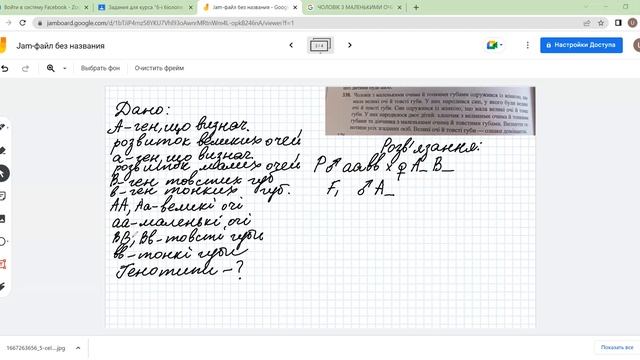 Войти в систему Facebook - Zoo
Задания для курса "6-і біологі
Jam-файл без названия - Googl
ЧОЛОВІК З МАЛЕНЬКИМИ ОЧИ
Jam-файл без названия
Настройки Доступа
Выбрать фон
Очистить фрейм
338. Чоловік з маленькими очима й тонкими губами одружився із жінкою, що
мала великі очі й товсті губи. У них народився син, у якого були великі
очі й тонкі губи. Син одружився із жінкою, що мала великі очі й тонкі
губи. У них народилося двоє дітей: хлопчик з великими очима й тонкими
губами та дівчинка з маленькими очима й товстими губами. Визначте ге-
нотипи усіх згаданих осіб. Великі очі й товсті губи — ознаки домінантні.
Дано:
А-ген, що визнач.
розвиток великих очей
а-ген, що визнач.
розвиток малих очей
В-ген товстих губ
в-ген тонких губ.
АА, Аа-великі очі
аа-маленькі очі
ВВ, Вв-товсті губи
вв-тонкі губи
Генотипи-?
Розв'язання:
Р ♂ аавв х ♀ А_ В_
F₁ ♂ А_
1667263656_5-cel....jpg
Показать все